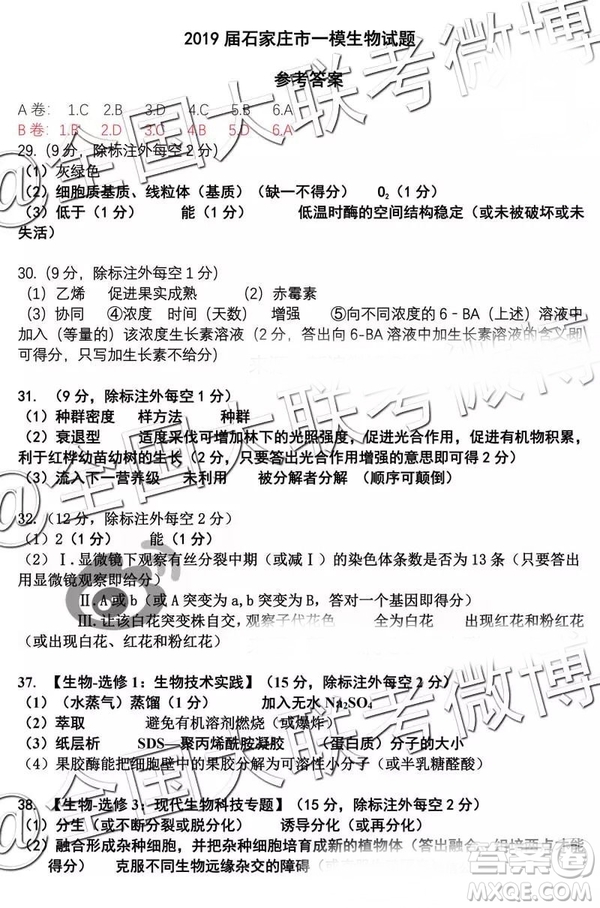 2019 届石家庄市一模生物试题
参考答案
A 卷: 1.C 2.B 3.D 4.C 5.B 6.A
B 卷: 1.B 2.D 3.C 4.B 5.D 6.A
29.（9 分，除标注外每空 2 分）
（1）灰绿色
（2）细胞质基质、线粒体（基质）（缺一不得分） O₂（1 分）
（3）低于（1 分） 能（1 分） 低温时酶的空间结构稳定（或未被破坏或未
失活）
30.（9 分，除标注外每空 1 分）
（1）乙烯 促进果实成熟 （2）赤霉素
（3）协同 ④浓度 时间（天数） 增强 ⑤向不同浓度的 6－BA（上述）溶液中
加入（等量的）该浓度生长素溶液（2 分，答出向 6-BA 溶液中加生长素溶液的含义即
可得分，只写加生长素不给分）
31. （9 分，除标注外每空 1 分）
（1）种群密度 样方法 种群
（2）衰退型 适度采伐可增加林下的光照强度，促进光合作用，促进有机物积累，
利于红桦幼苗幼树的生长（2 分，只要答出光合作用增强的意思即可得分）
（3）流入下一营养级 未利用 被分解者分解 （顺序可颠倒）
32.（12 分，除标注外每空 2 分）
（1）2（1 分） 能（1 分）
（2）Ⅰ.显微镜下观察有丝分裂中期（或减Ⅰ）的染色体条数是否为 13 条（只要答出
用显微镜观察即给分）
Ⅱ. A或b（或 A 突变为 a,b 突变为 B，答对一个基因即得分）
Ⅲ. 让该白花突变株自交，观察子代花色 全为白花 出现红花和粉红花
（或出现白花、红花和粉红花）
37. 【生物-选修 1：生物技术实践】（15 分，除标注外每空 2 分）
（1）（水蒸气）蒸馏（1 分） 加入无水 Na₂SO₄
（2）萃取 避免有机溶剂燃烧（或爆炸）
（3）纸层析 SDS—聚丙烯酰胺凝胶 （蛋白质）分子的大小
（4）果胶酶能把细胞壁中的果胶分解为可溶性小分子（或半乳糖醛酸）
38. 【生物-选修 3：现代生物科技专题】（15 分，除标注外每空 2 分）
（1）分生（或不断分裂或脱分化） 诱导分化（或再分化）
（2）融合形成杂种细胞，并进一步培育成新的植物体（答出融合、组培两点才能
得分） 克服不同生物远缘杂交的障碍（或
@全国大联考微博
@全国大联考微博
@全国大联考微博
答案圈
MXQE.COM